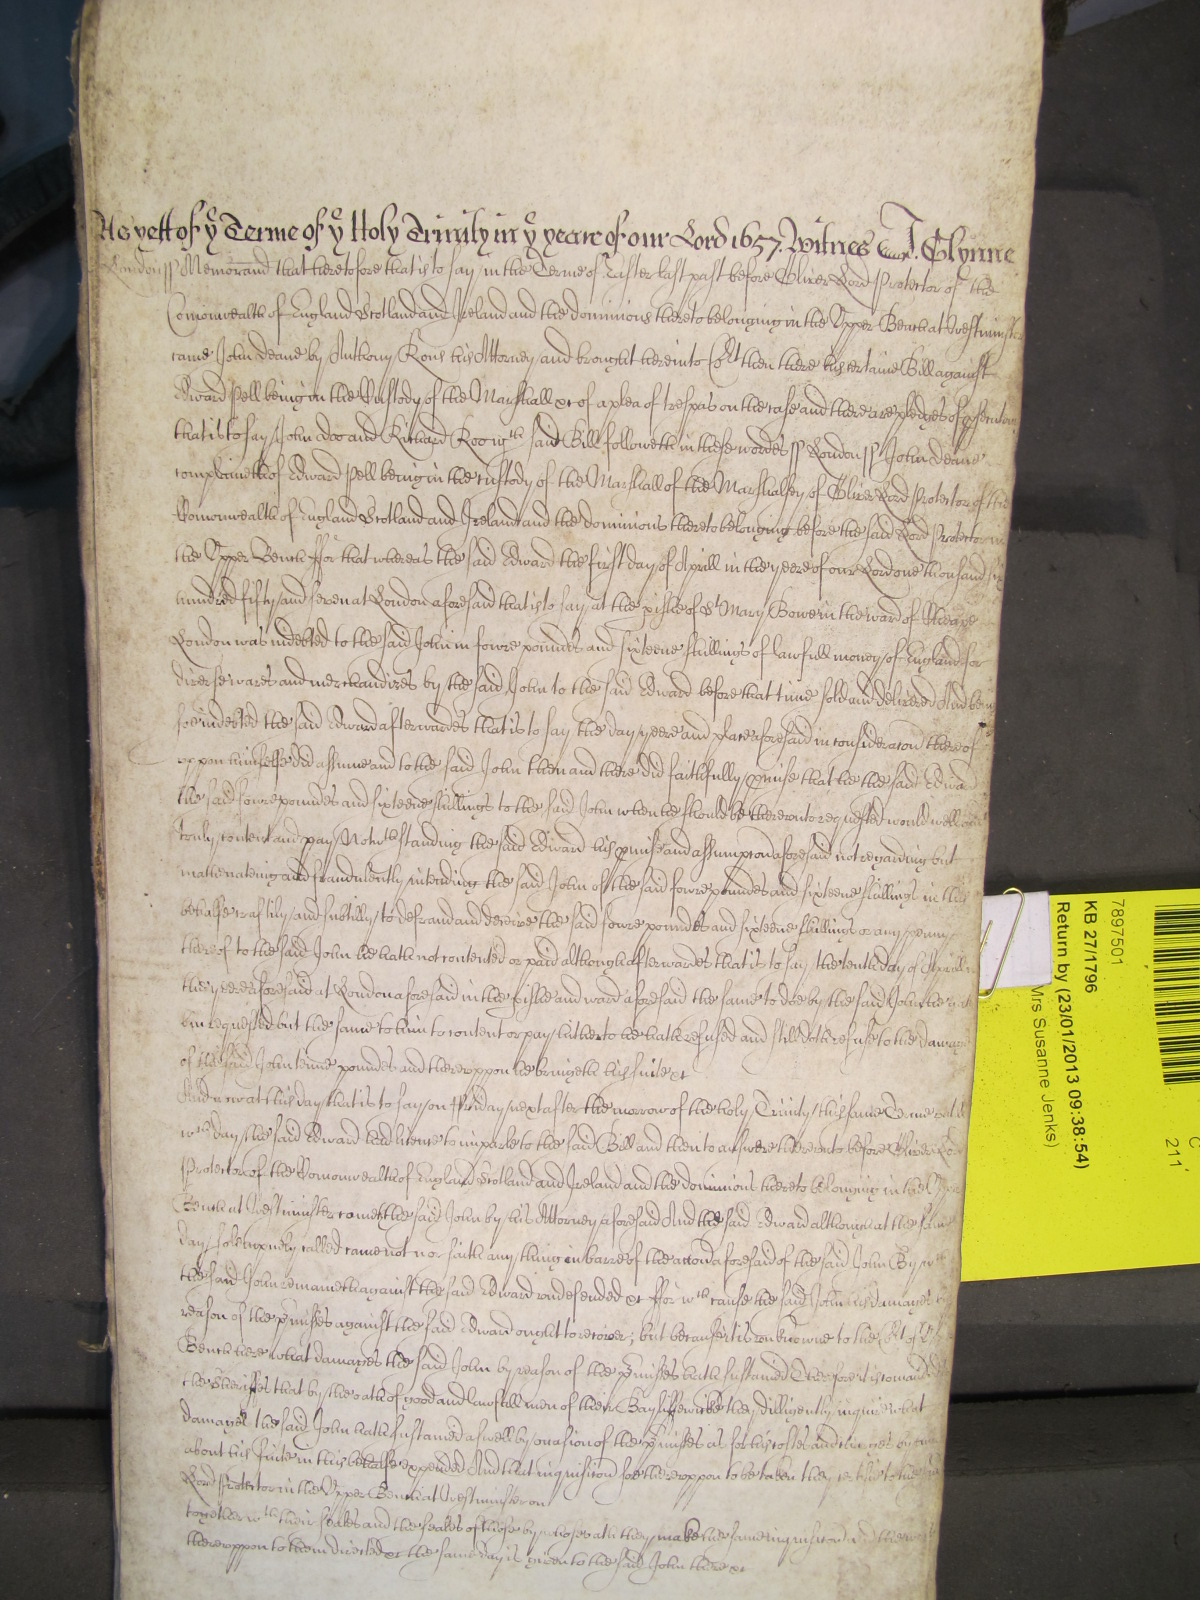 As yett of ye Terme of ye Holy Trinity in ye yeare of our Lord 1657. Witnes J. Glynne
London ss Memorand that heretofore that is to say in the Terme of Easter last past before Oliver Lord Protector of the
Comonwealth of England Scotland and Ireland and the dominions thereto belonging in the Upper Bench at Westminster
came John Deane by Anthony Rous his Attorney and brought here into Cort then there his certaine Bill against
Edward Pell being in the Custody of the Marshall &c of a plea of trespas on the case and there are pledges of psecution
that is to say John Doo and Richard Roo wch said Bill followeth in these wordes ss London ss John Deane
complaineth of Edward Pell being in the custody of the Marshall of the Marshalsey of Oliver Lord Protector of the
Comonwealth of England Scotland and Ireland and the dominions thereto belonging before the said Lord Protector in
the Upper Bench ffor that whereas the said Edward the first day of Aprill in the yeere of our Lord one thousand six
hundred fifty and seven at London aforesaid that is to say at the pishe of St Mary Bowe in the ward of Cheape
London was indebted to the said John in fowre poundes and sixteene shillings of lawfull money of England for
diverse wares and merchandizes by the said John to the said Edward before that time sold and delivered And being
soe indebted the said Edward afterwardes that is to say the day yeere and place aforesaid in consideracon thereof
uppon himselfe did assume and to the said John then and there did faithfully pmise that he the said Edward
the said fowre poundes and sixteene shillings to the said John when he should be thereunto requested would well and
truly content and pay Notwthstanding the said Edward his pmise and assumpcon aforesaid not regarding but
machinateing and fraudulently intending the said John of the said fowre poundes and sixteene shillings in this
behalfe craftily and subtilly to defraud and deceive the said fowre poundes and sixteene shillings or any penny
thereof to the said John he hath not contented or paid although afterwardes that is to say the tenth day of Aprill in
the yeere aforesaid at London aforesaid in the pishe and ward aforesaid the same to doe by the said John
bin requested but the same to him to content or pay hitherto he hath refused and still doth refuse to the damage
of the said John tenne poundes and thereuppon he bringeth his suite &c
And now at this day that is to say on Friday next after the morrow of the holy Trinity this same Terme untill
wch day the said Edward had licence to imparle to the said Bill and then to answere thereunto before Oliver Lord
Protector of the Comonwealth of England Scotland and Ireland and the dominions thereto belonging in the Upper
Bench at Westminster cometh the said John by his Attorney aforesaid And the said Edward although at the same
day solempnely called came not nor saith any thing in barre of the accon aforesaid of the said John By wch
the said John remaineth against the said Edward undefended &c ffor wch cause the said John his damages by
reason of the pmisses against the said Edward ought to recover; but because it is unknowne to the Cort of
Bench here what damages the said John by reason of the pmisses hath sustained Therefore it is comanded
the Sheriffes that by the oath of good and lawfull men of their Bayliffewicke they dilligently inquire what
damages the said John hath sustained aswell by occasion of the pmisses as for his costes and charges by him
about his suite in this behalfe expended And that inquisicon soe thereuppon to be taken they certifie to the said
Lord Protector in the Upper Bench at Westminster on
together wth their seales and the seales of those by whose oath they make the same inquisicon and the writt
thereuppon to them directed &c the same day is given to the said John there &c
7897501
KB 27/1796
Return by (23/01/2013 09:38:54)
Mrs Susanne Jenks)
C
211